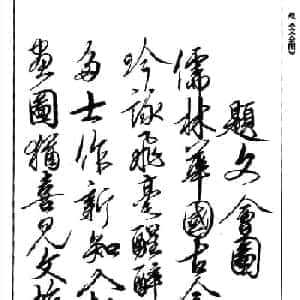 題文會圖
儒林華國古今
吟詠飛毫醒醉
多士作新知入
畫圖猶喜見文